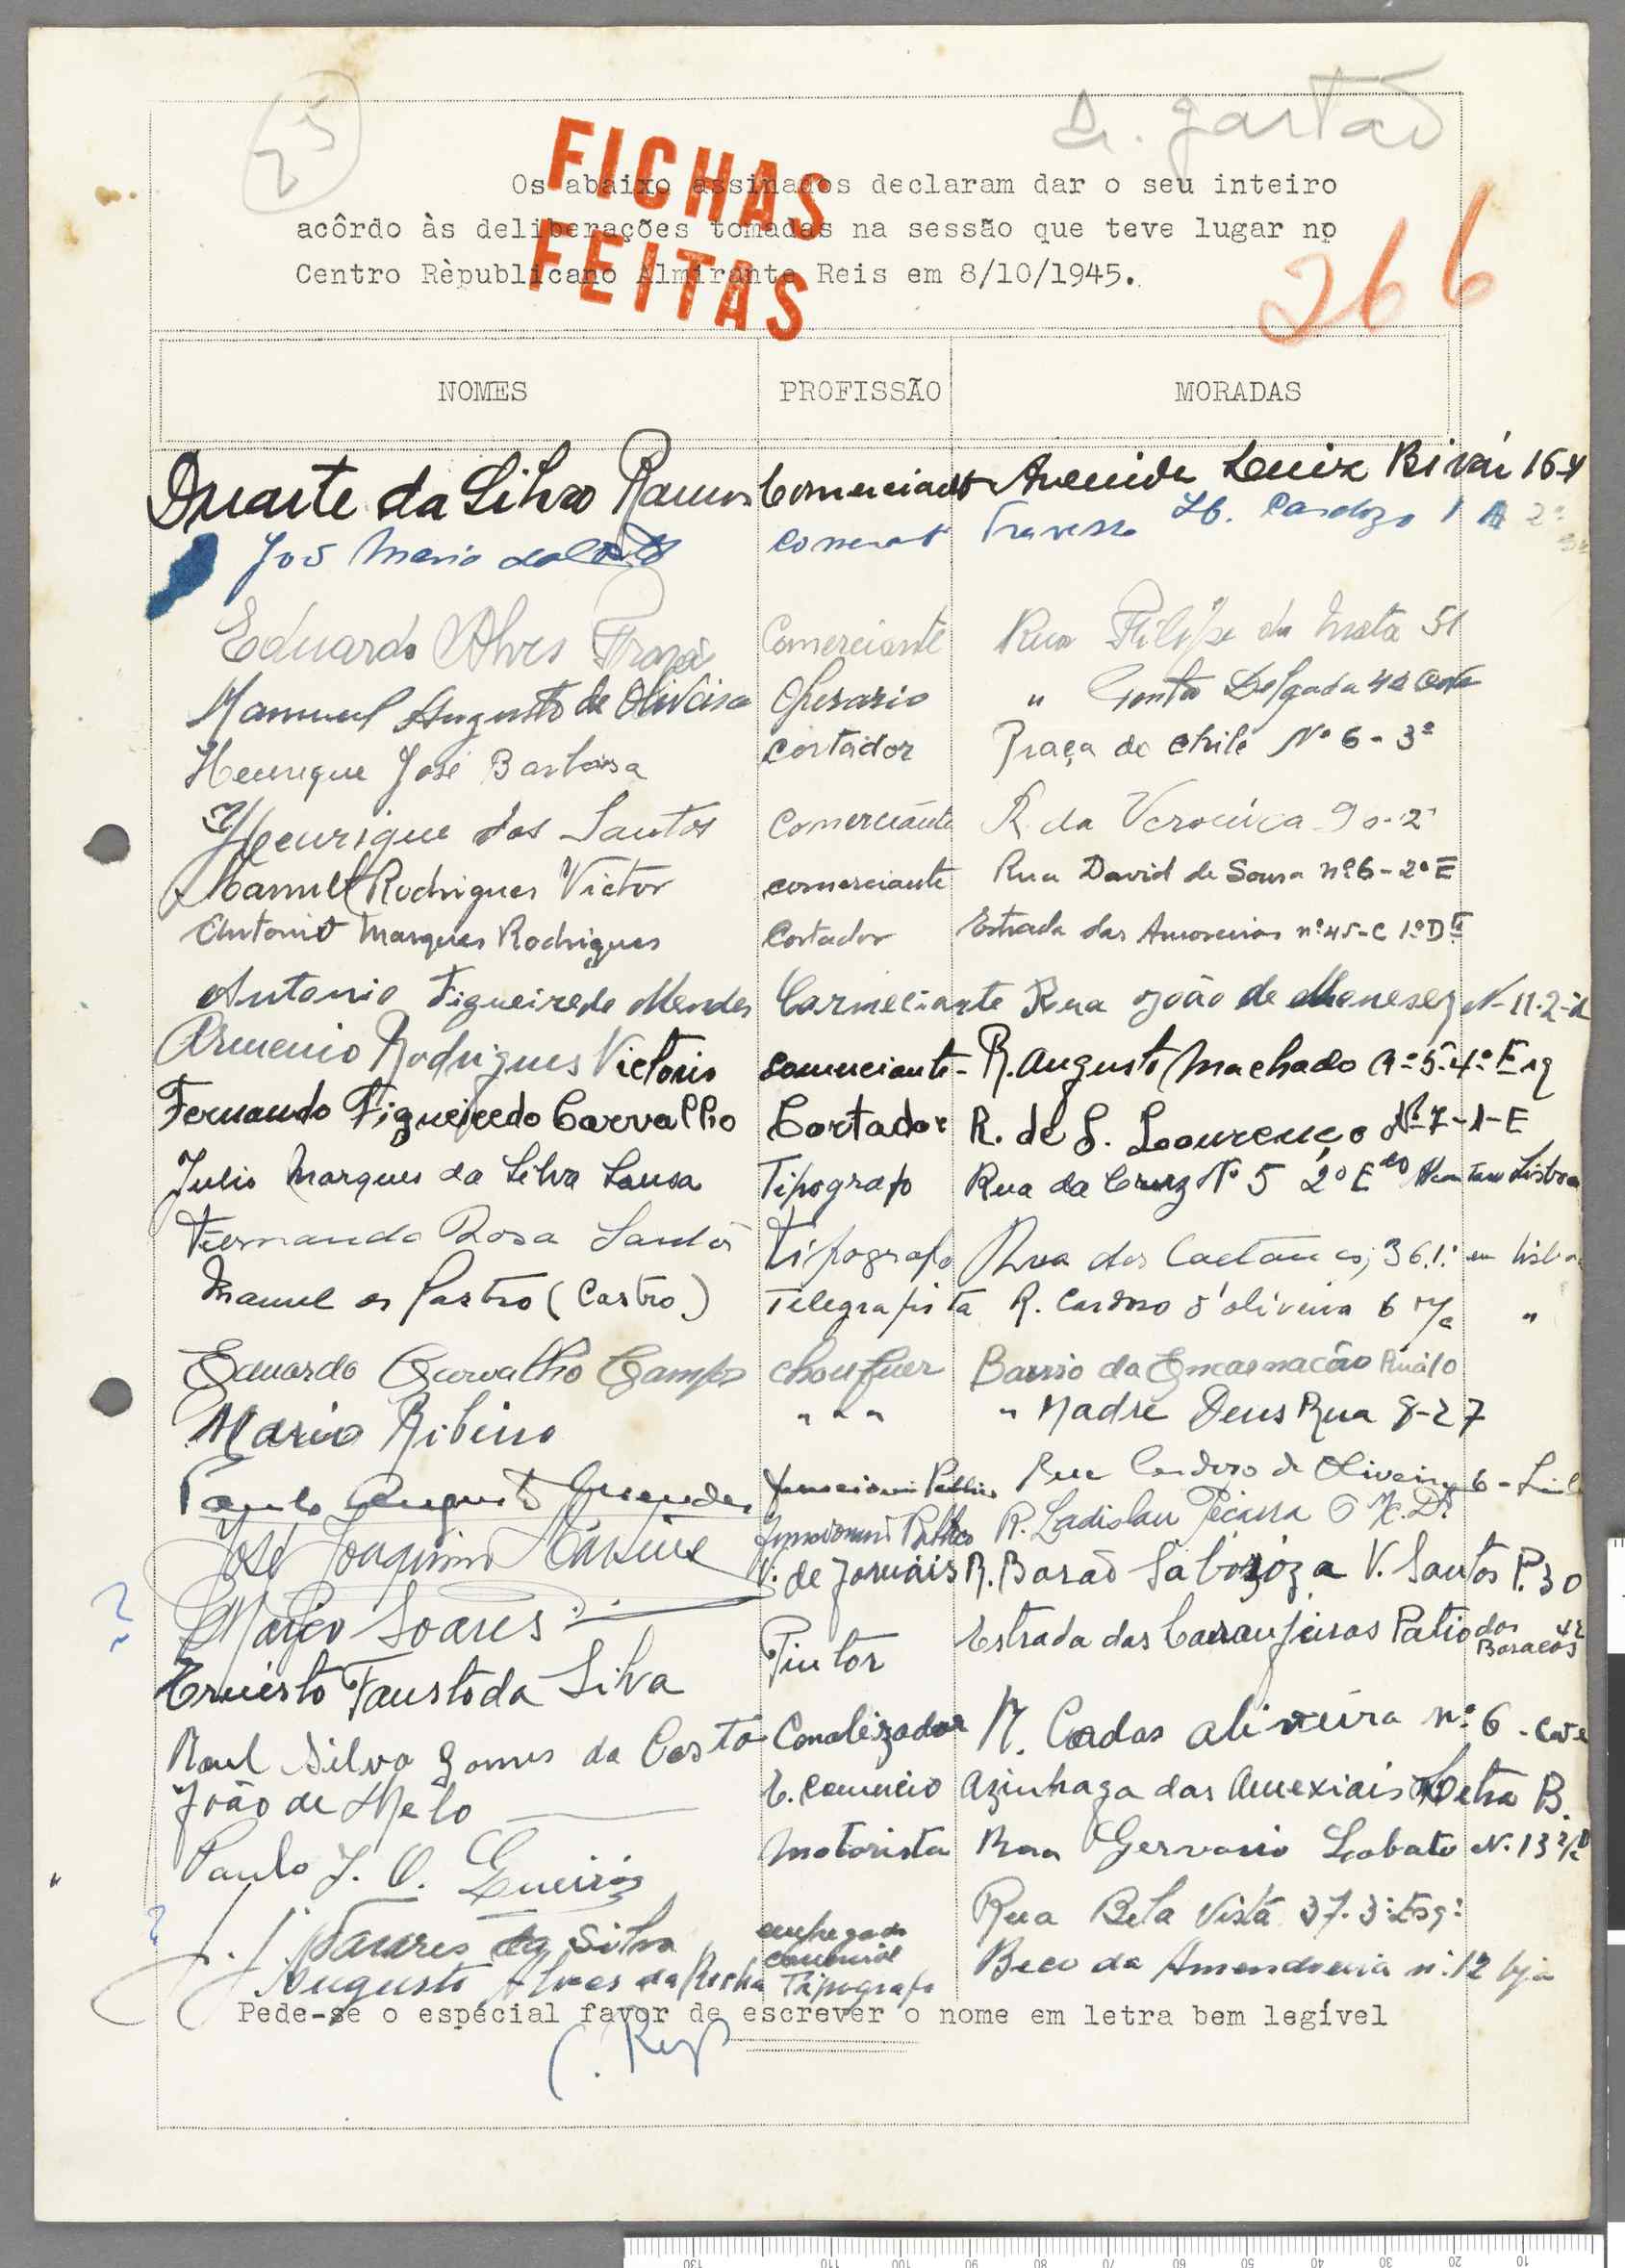 25
Dr. Gastão
FICHAS
FEITAS
Os abaixo assinados declaram dar o seu inteiro
acôrdo às deliberações tomadas na sessão que teve lugar no
Centro Rèpublicano Almirante Reis em 8/10/1945.
266
NOMES PROFISSÃO MORADAS
Duarte da Silva Ramos Comerciante Avenida Luiz Bivár 16-4
Travessa Cardozo 1 A 2º
Eduardo Alves Comerciante Rua Filipe da Mata 51
Manuel Augusto de Oliveira Operario " Ponta Delgada 42
Henrique José Barbosa Cortador Praça do Chile Nº 6 - 3º
Henrique dos Santos Comerciante R. da Veronica 90-2º
Manuel Rodrigues Victor comerciante Rua David de Sousa nº 6 - 2º E
Antonio Marques Rodrigues Cortador Estrada das Amoreiras nº 45-C 1º Dtº
Antonio Figueiredo Mendes Carmeciante Rua João de Menesez N- 11-2-
Armenio Rodrigues Victorio comerciante - R. Augusto Machado nº 5-4º Esq
Fernando Figueiredo Carvalho Cortador R. de S. Lourenço Nº 7-1-E
Julio Marques da Silva Sousa Tipografo Rua da Cruz Nº 5 2º Edo Lisboa
Fernando Rosa Santos tipografo Rua dos Caetanos, 36.1º em Lisboa
Manuel de Castro (Castro) Telegrafista R. Cardoso d'oliveira 6 "
Eduardo Carvalho Campos Choufuer Bairro da Encarnacão Rua 10
Mario Ribeiro " " " " Madre Deus Rua 8-27
Paulo Augusto Guendes funcionario Publico Rua Cardoso de Oliveira 6 -
José Joaquim funcionario Publico R. Ladislau Picarra
V. de Jornais R. Barão Sabroza V. Santos P. 30
Março Soares
Pintor Estrada das Laranjeiras Patio dos Baracos 42
Ernésto Fausto da Silva
Raul Silva Gomes da Costa Canalizador R. Cardos Oliveira nº 6 - Cave
João de Melo E. Comercio Azinhaga das Ameixiais Letra B.
Paulo J. O. Queiroz Motorista Rua Gervasio Lobato N. 13
J. J. Tavares da Silva empregado comercial Rua Bela Vista 37-3º Esqº
Augusto Alves da Rocha Tipografo Beco da Amendoeira nº 12 lja
Pede-se o espécial favor de escrever o nome em letra bem legível